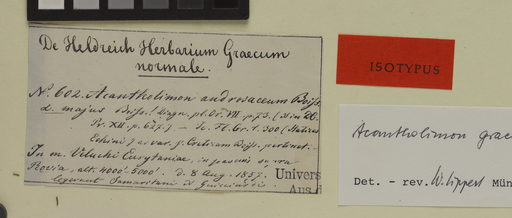 De Heldreich Herbarium Graecum
normale.
No. 602. Acantholimon androsaceum Boiss.
α. majus Boiss. (Diagn. pl. Or. VII. p. 73. (
Pr. XII. p. 627.) — Fl. Gr. t. 300 (Statice
Echinus) var. Boiss.
In m. Veluchi Eurytaniae, in supra
alt. 4000'-5000'. d. 8 Aug. 1857.
legerunt Samaritani & Guicciardi.
Univers
Aus d
ISOTYPUS
Acantholimon grae
Det. - rev. W. Lippert Mün